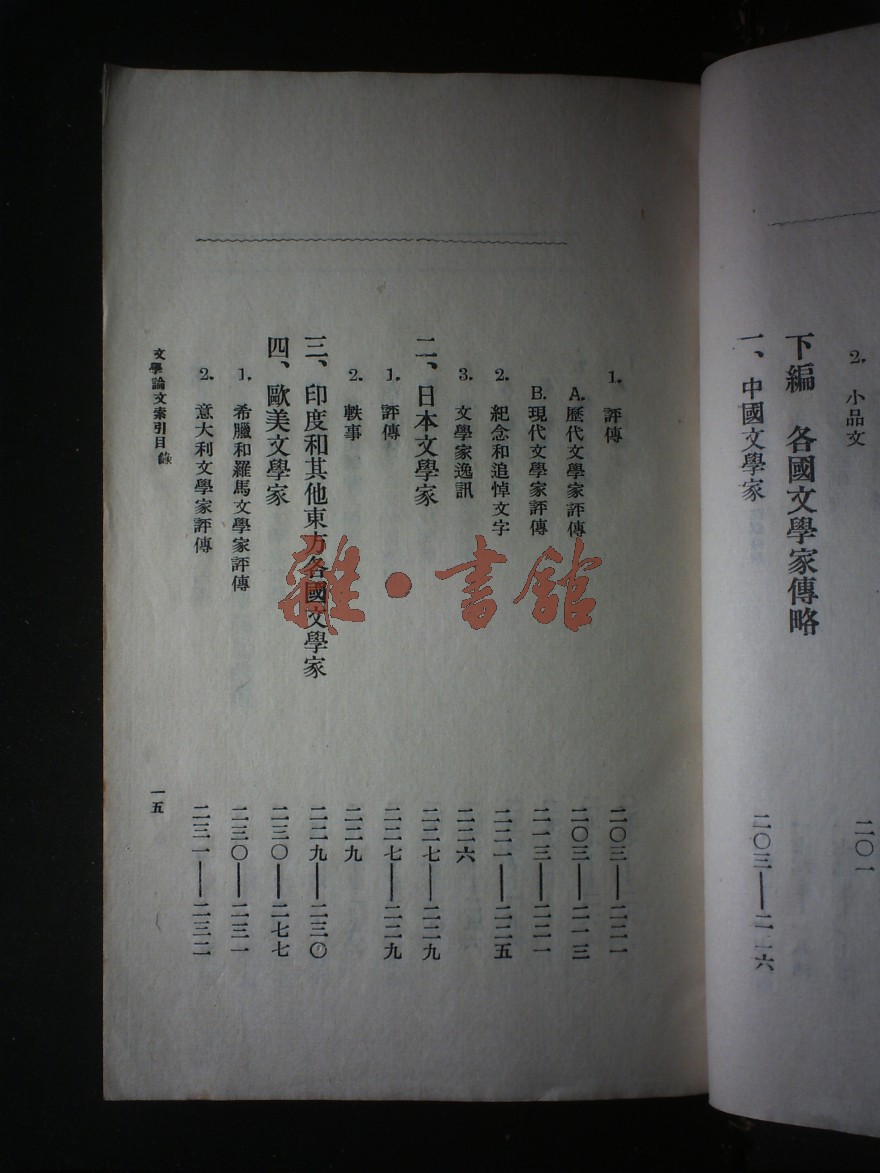 2. 小品文 二〇一
下編 各國文學家傳略
一、中國文學家 二〇三——二二六
1. 評傳 二〇三——二二一
A. 歷代文學家評傳 二〇三——二一三
B. 現代文學家評傳 二一三——二二一
2. 紀念和追悼文字 二二一——二二五
3. 文學家逸訊 二二六
二、日本文學家 二二七——二二九
1. 評傳 二二七——二二九
2. 軼事 二二九
三、印度和其他東方各國文學家 二二九——二三〇
四、歐美文學家 二三〇——二七七
1. 希臘和羅馬文學家評傳 二三〇——二三一
2. 意大利文學家評傳 二三一——二三二
文學論文索引目錄 一五
雜·書館